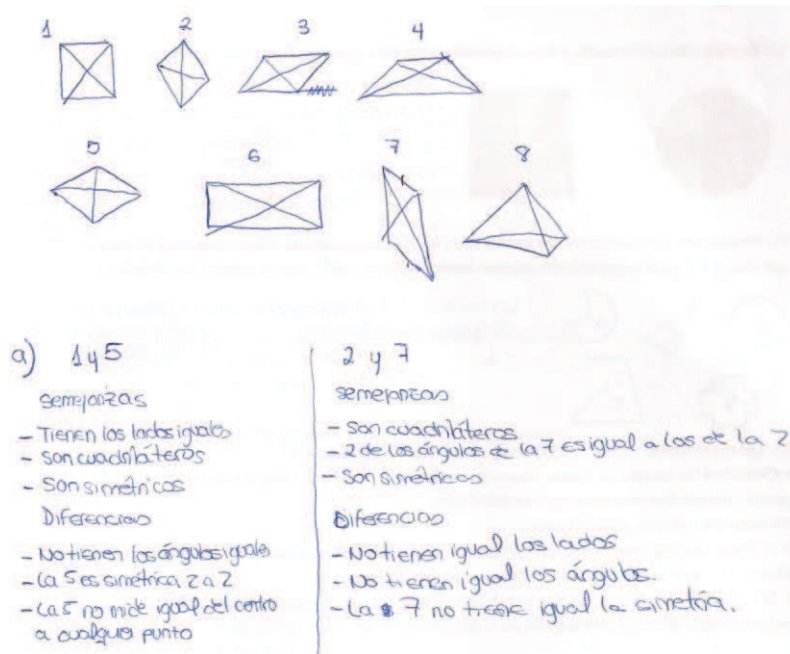 1 2 3 4
5 6 7 8
a) 1 y 5
semejanzas
- Tienen los lados iguales
- son cuadriláteros
- Son simétricos
Diferencias
- No tienen los ángulos iguales
- La 5 es simétrica 2 a 2
- La 5 no mide igual del centro
a cualquier punto
2 y 7
semejanzas
- Son cuadriláteros
- 2 de los ángulos de la 7 es igual a los de la 2
- Son simétricos
Diferencias
- No tienen igual los lados
- No tienen igual los ángulos.
- La 7 no tiene igual la simetría.